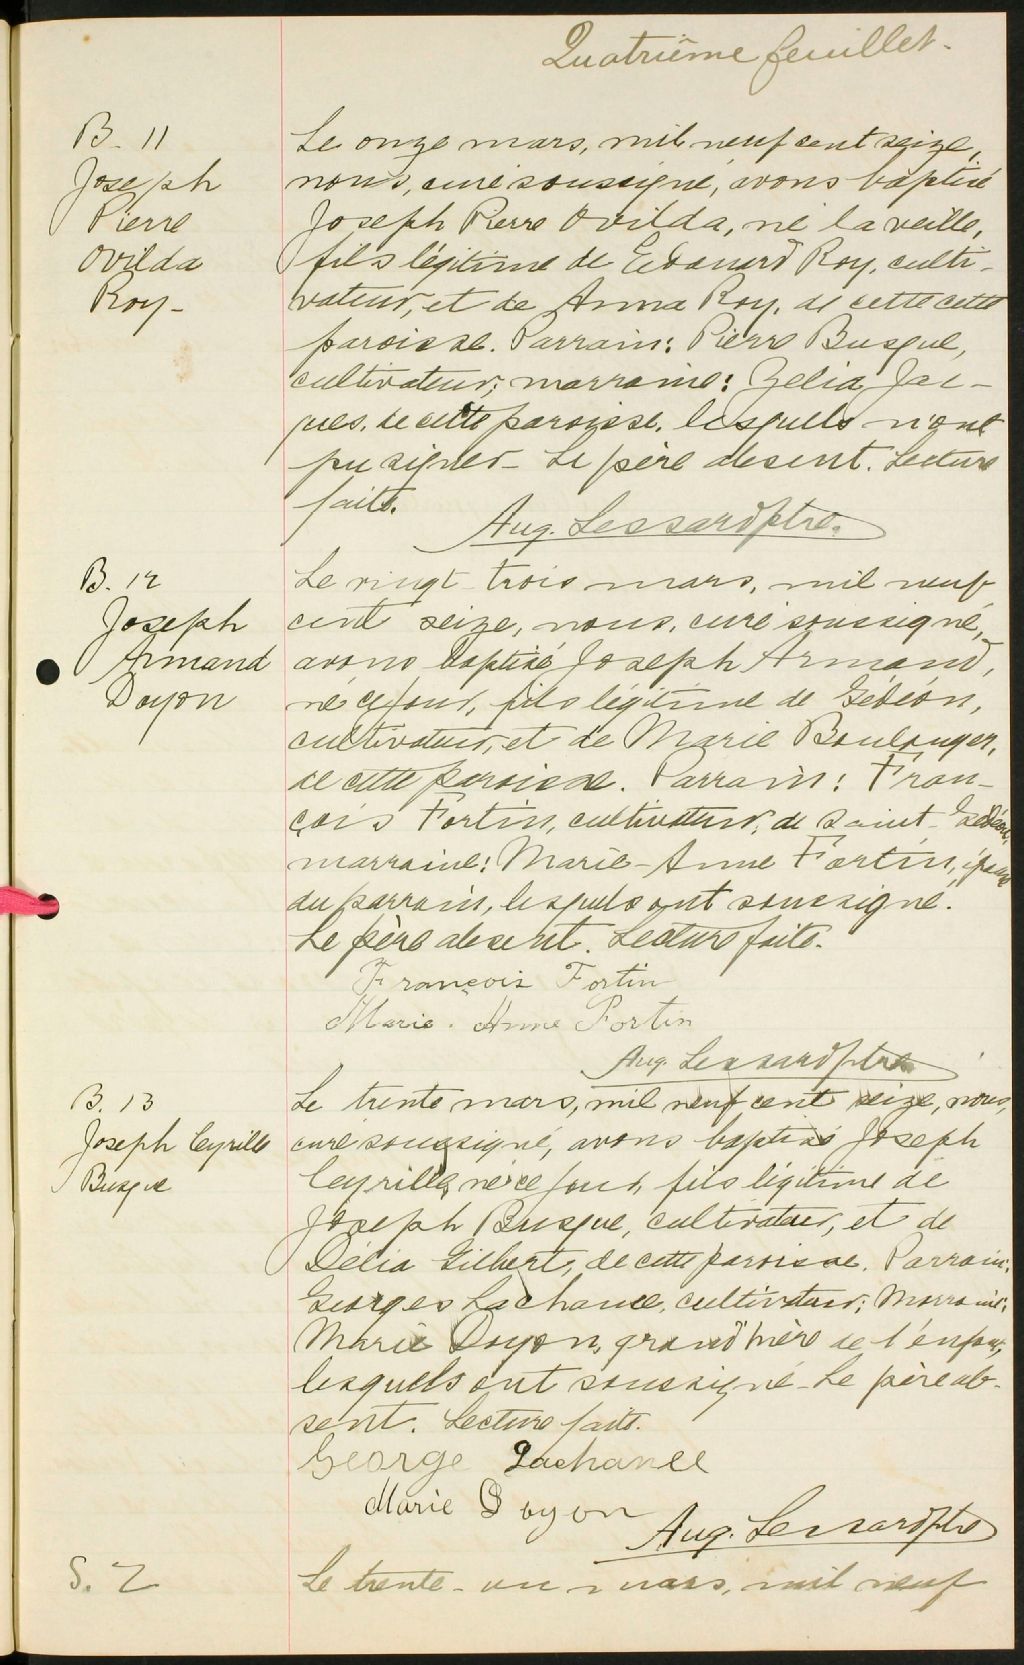 Quatrième feuillet.
B. 11
Joseph
Pierre
Ovilda
Roy-
Le onze mars, mil neuf cent seize,
nous, curé soussigné, avons baptisé
Joseph Pierre Ovilda, né la veille,
fils légitime de Edouard Roy, culti-
vateur, et de Anna Roy, de cette cette
paroisse. Parrain: Pierre Busque,
cultivateur; marraine: Zelia Jac-
ques, de cette paroisse, lesquels n'ont
pu signer- Le père absent. Lecture
faite.
Aug. Lessard ptre.
B. 12
Joseph
Armand
Doyon
Le vingt-trois mars, mil neuf
cent seize, nous, curé soussigné,
avons baptisé Joseph Armand,
né ce jour, fils légitime de Gédéon,
cultivateur, et de Marie Boulanger,
de cette paroisse. Parrain: Fran-
çois Fortin, cultivateur, de Saint-Gédéon,
marraine: Marie-Anne Fortin, épouse
du parrain, lesquels ont soussigné.
Le père absent. Lecture faite.
François Fortin
Marie. Anne Fortin
Aug. Lessard ptre
B. 13
Joseph Cyrille
Busque
Le trente mars, mil neuf cent seize, nous,
curé soussigné, avons baptisé Joseph
Cyrille, né ce jour, fils légitime de
Joseph Busque, cultivateur, et de
Délia Gilbert, de cette paroisse. Parrain:
Georges Lachance, cultivateur; Marraine:
Marie Doyon, grand'mère de l'enfant,
lesquels ont soussigné- Le père ab-
sent. Lecture faite.
George Lachance
Marie Doyon
Aug. Lessard ptre
S. 2
Le trente-un mars, mil neuf